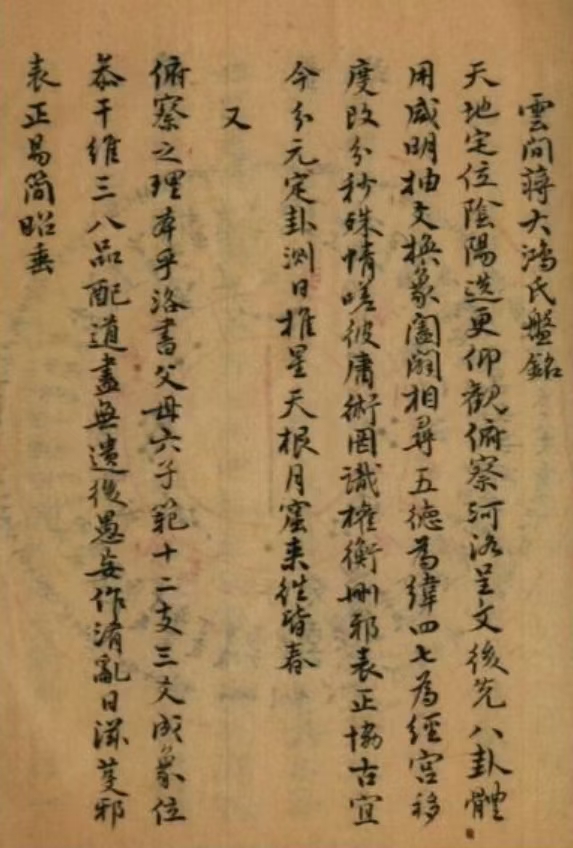 雲间蔣大鴻氏盤銘
天地定位陰陽迭更仰觀俯察河洛呈文後先八卦體
用咸明抽文換象闔闢相尋五德為緯四七為經宫移
度改分秒殊情嗟彼庸術罔識權衡刪邪表正協古宜
今分元定卦測日推星天根月窟来往皆春
又
俯察之理本乎洛書父母六子範十二支三文成象位
忝干維三八品配道盡無遺後愚妄作淆亂日滋蔓邪
表正易简昭垂